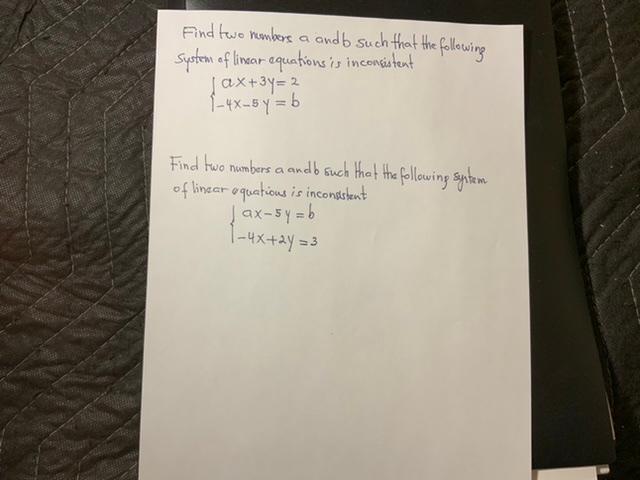 Find two numbers a and b such that the following
system of linear equations is inconsistent
{ ax+3y=2
-4x-5y=b
Find two numbers a and b such that the following system
of linear equations is inconsistent
{ ax-5y=b
-4x+2y=3